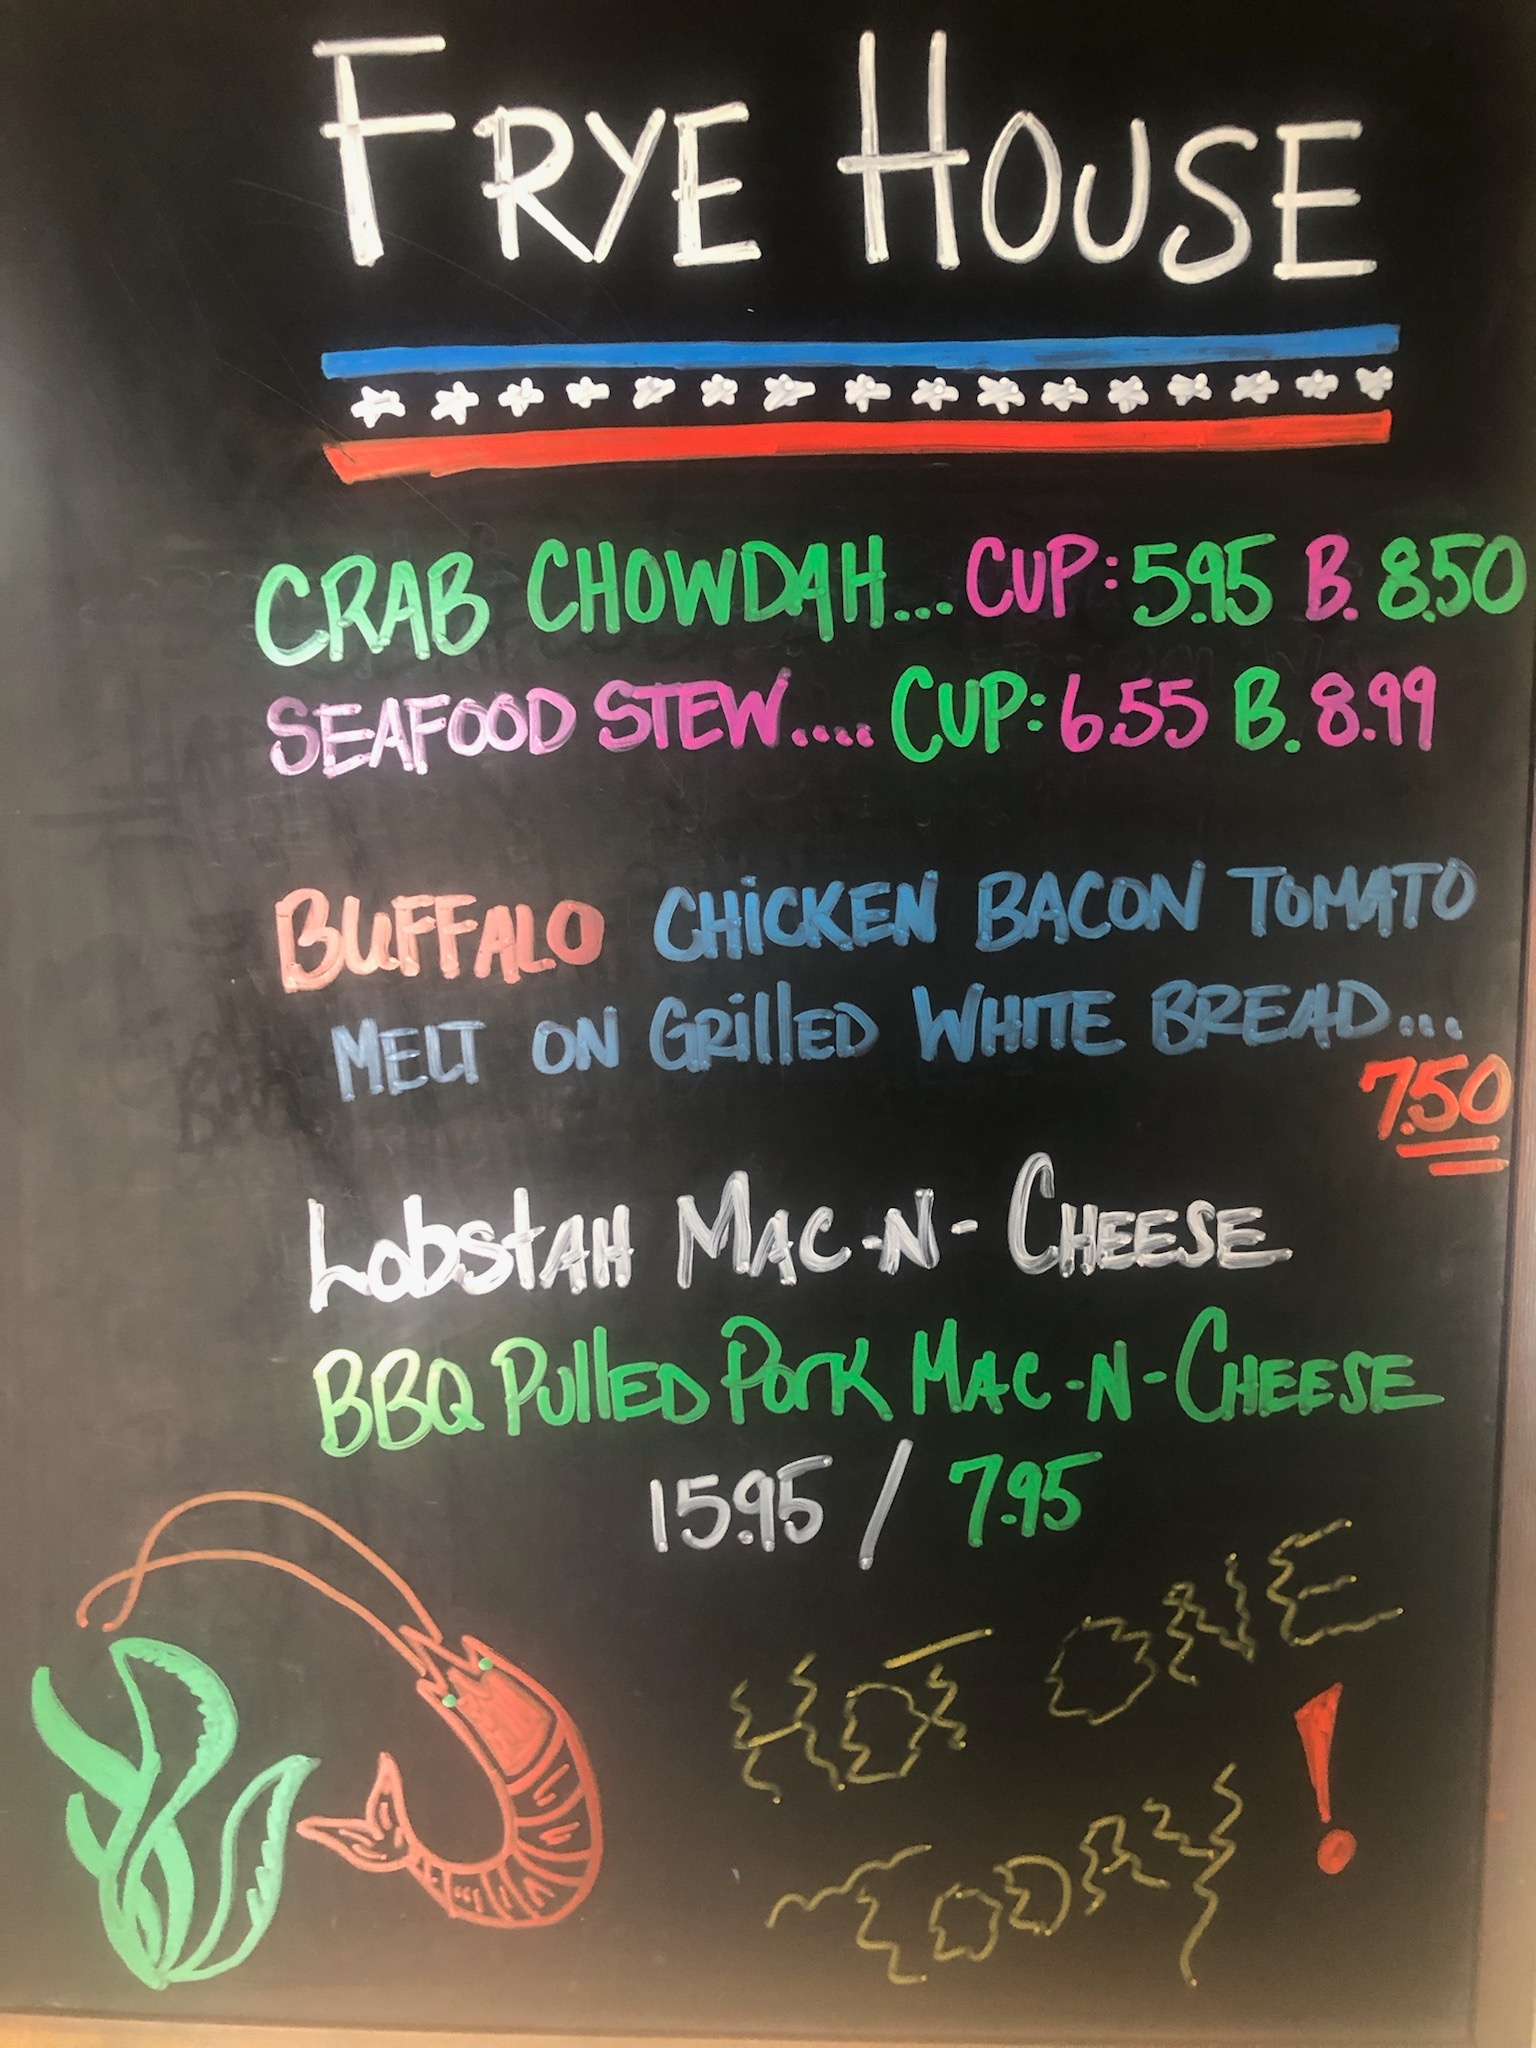 FRYE HOUSE
CRAB CHOWDAH... CUP: 5.95 B. 8.50
SEAFOOD STEW.... CUP: 6.55 B. 8.99
BUFFALO CHICKEN BACON TOMATO
MELT ON GRILLED WHITE BREAD...
7.50
LOBSTAH MAC-N-CHEESE
BBQ PULLED PORK MAC-N-CHEESE
15.95 / 7.95
HOT ONE
TODAY!